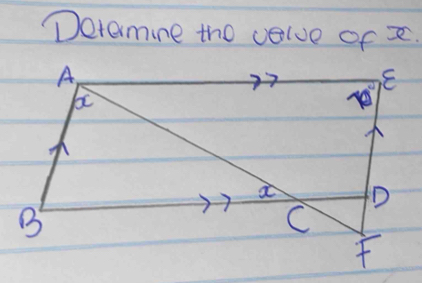 Determine the value of x.
A
E
x
x
B
C
D
F